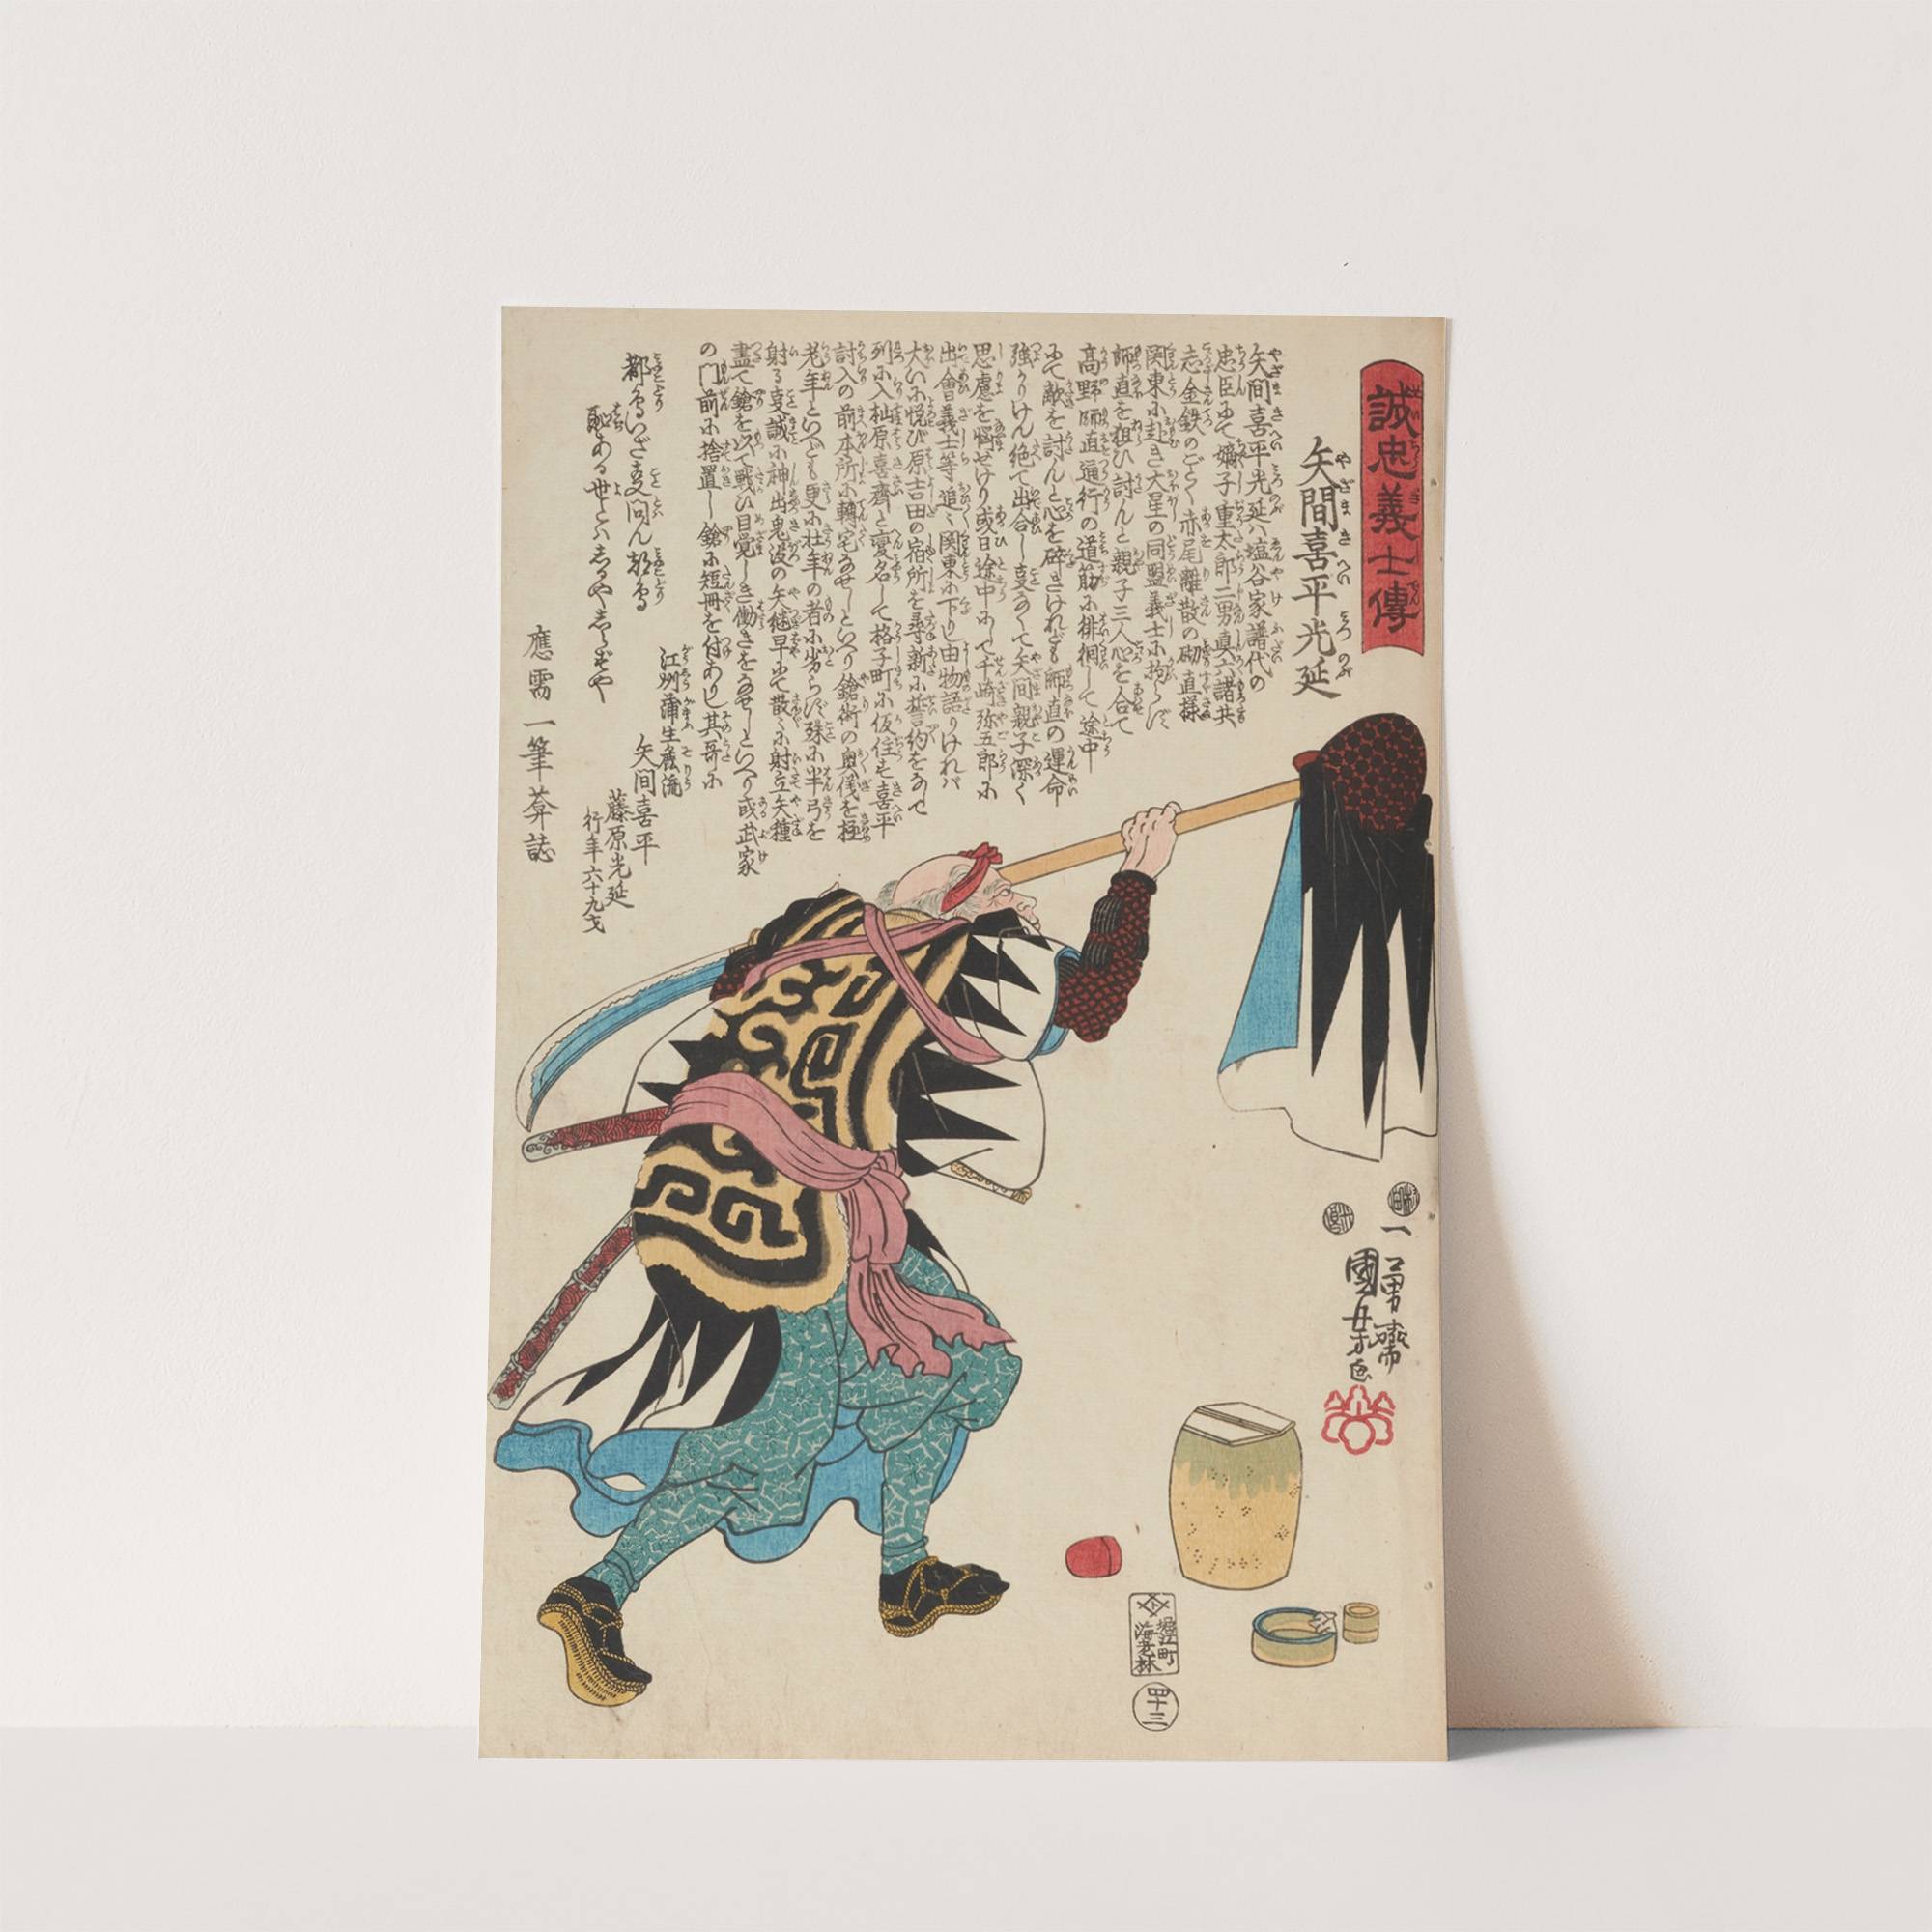 誠忠義士傳
矢間喜平光延
矢間喜平光延ハ塩谷家譜代の
忠臣にて嫡子重太郎二男真六諸共
志金鉄のごとく赤尾離散の砌直様
関東に赴き大星の同盟義士に拘らず
師直を狙ひ討んと親子三人心を合て
高野師直通行の道筋に徘徊して途中
にて敵を討んと心を砕きけれども師直の運命
強かりけん絶て出合し事なくて矢間親子深く
思慮を悩せけり或日途中にて千崎弥五郎に
出會義士等追々関東に下りし由物語りけれバ
大いに悦び原吉田の宿所を尋新に誓約をなせ
列に入杣原喜齋と変名して格子町に仮住す喜平
討入の前本所に轉宅なせしといへり鎗術の奥儀を極
老年といへども更に壮年の者に劣らず殊に半弓を
射る事誠に神出鬼没の矢継早にて散々に射立矢種
盡て鎗を以て戦ひ目覚しき働きをなせしといへり或武家
の門前に捨置し鎗に短冊を付ありし其哥に
都鳥いざ事問ん都鳥
恥ある世とハしるやしらずや
江州蒲生嫡流
矢間喜平
藤原光延
行年六十九才
應需 一筆葊誌
一勇齋
國芳画
堀江町
海老林
四十三